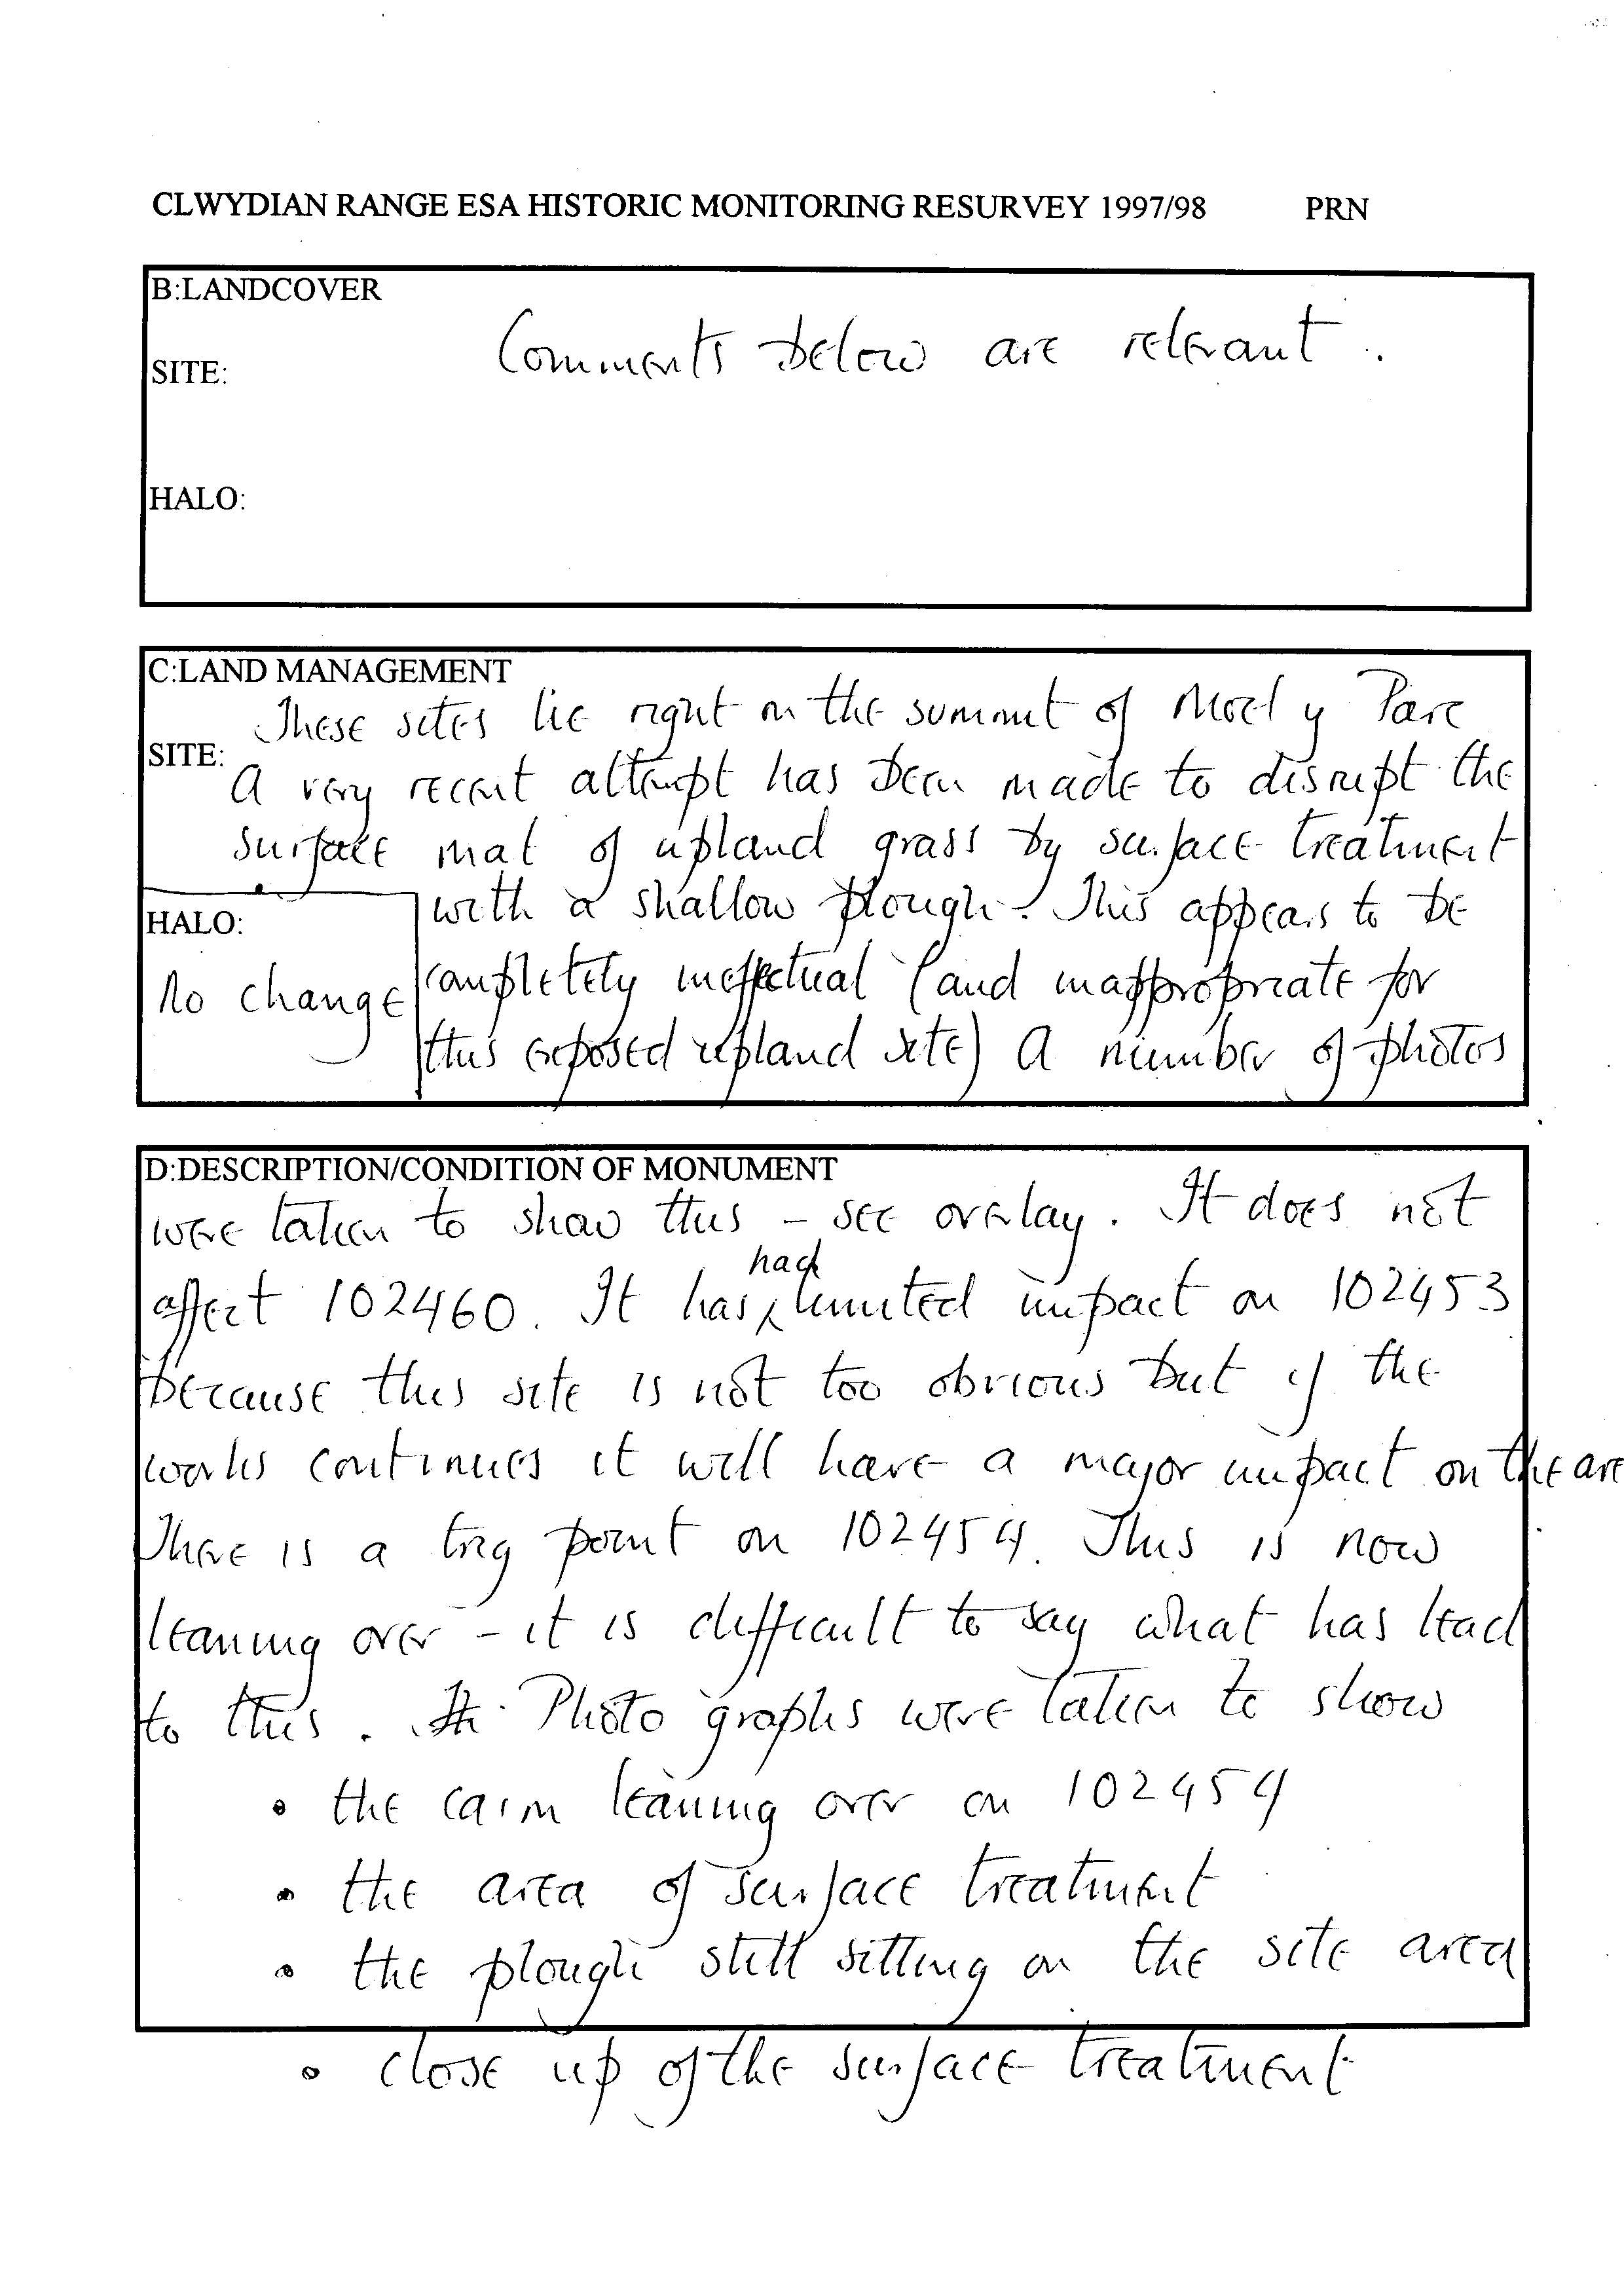 CLWYDIAN RANGE ESA HISTORIC MONITORING RESURVEY 1997/98 PRN
B:LANDCOVER
Comments below are relevant.
SITE:
HALO:
C:LAND MANAGEMENT
These sites lie right on the summit of Moel y Parc
SITE:
A very recent attempt has been made to disrupt the
surface mat of upland grass by surface treatment
with a shallow plough. This appears to be
HALO:
completely ineffectual (and inappropriate for
No change
this exposed upland site) A number of photos
D:DESCRIPTION/CONDITION OF MONUMENT
were taken to show this - see overlay. It does not
affect 102460. It has had limited impact on 102453
because this site is not too obvious but if the
works continues it will have a major impact on the are
There is a trig point on 102454. This is now
leaning over - it is difficult to say what has lead
to this. Photo graphs were taken to show
• the cairn leaning over on 102454
• the area of surface treatment
• the plough still sitting on the site area
• close up of the surface treatment